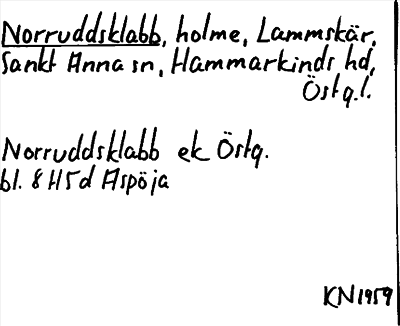 Norruddsklabb, holme, Lammskär,
Sankt Anna sn, Hammarkinds hd,
Östg.l.
Norruddsklabb ek Östg.
bl. 8 H5d Aspöja
KN1959